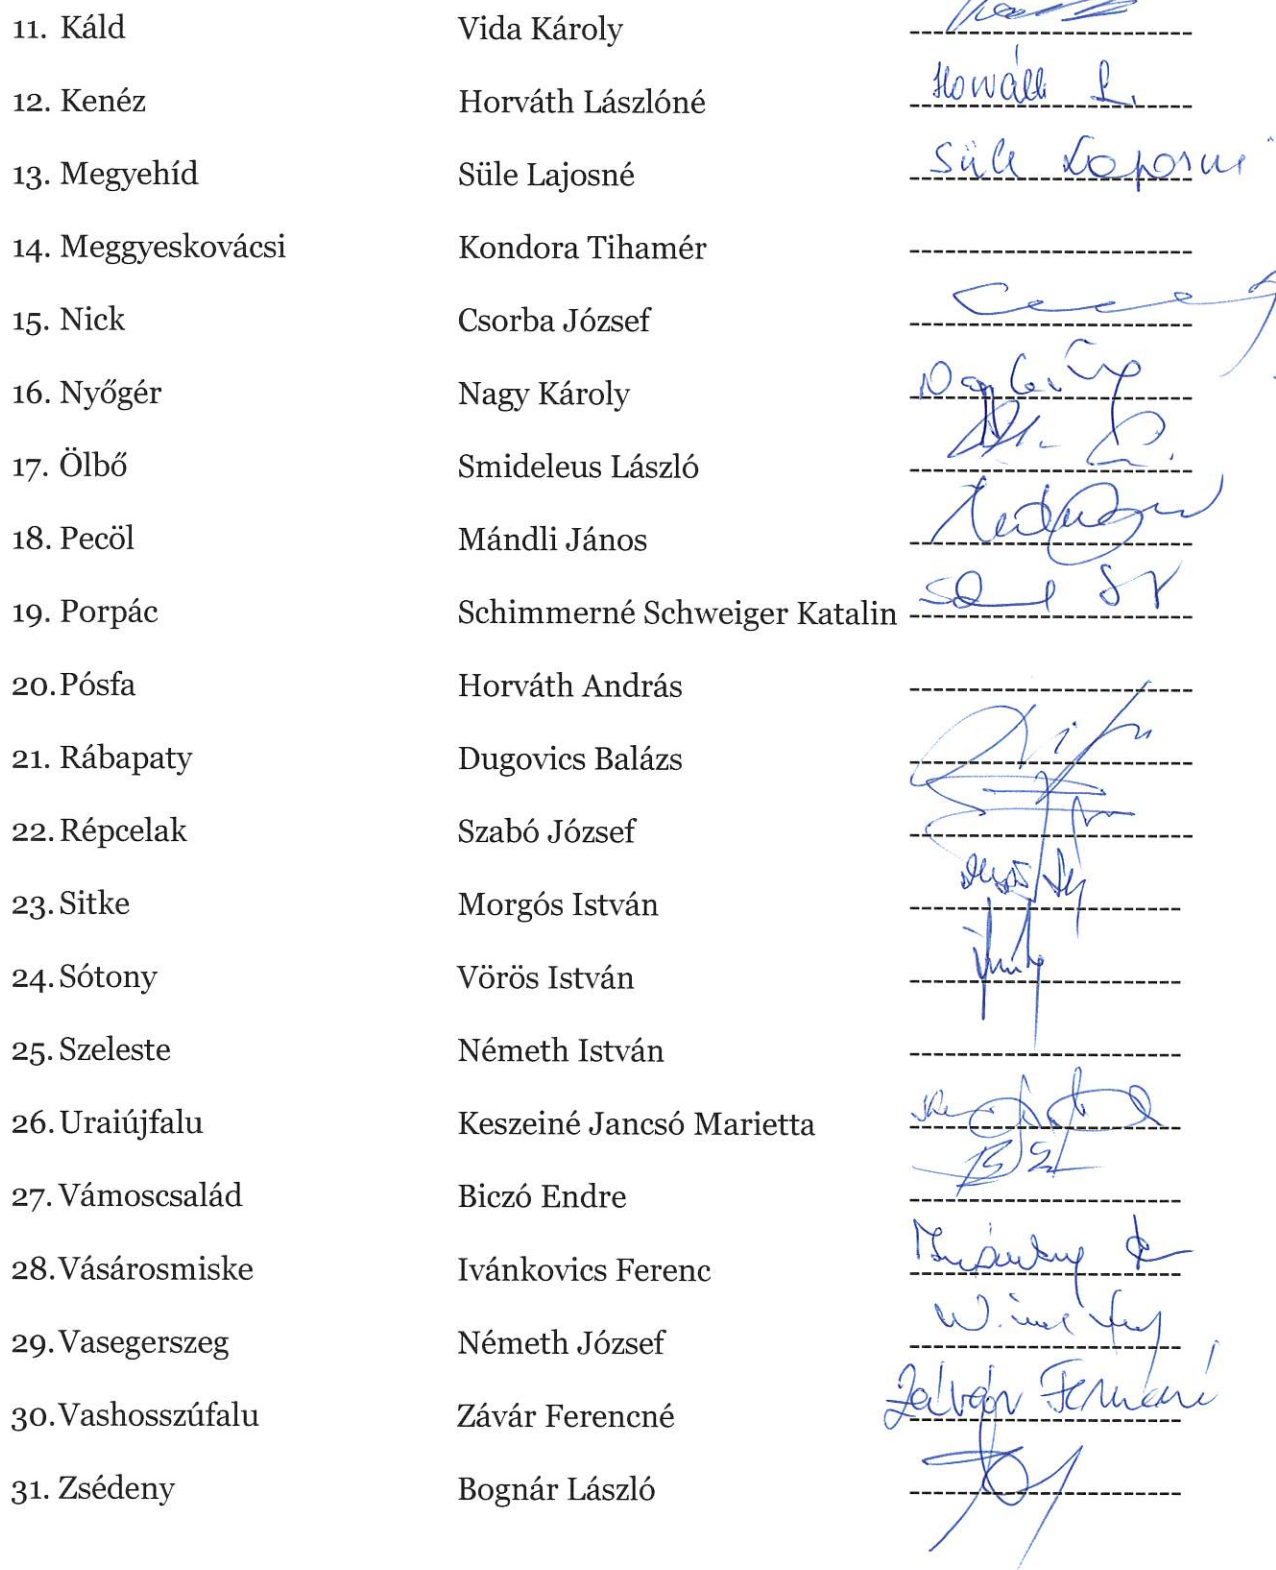 11. Káld Vida Károly
12. Kenéz Horváth Lászlóné Horváth L.
13. Megyehíd Süle Lajosné Süle Lajosné
14. Meggyeskovácsi Kondora Tihamér
15. Nick Csorba József
16. Nyőgér Nagy Károly
17. Ölbő Smideleus László
18. Pecöl Mándli János
19. Porpác Schimmerné Schweiger Katalin
20. Pósfa Horváth András
21. Rábapaty Dugovics Balázs
22. Répcelak Szabó József
23. Sitke Morgós István
24. Sótony Vörös István
25. Szeleste Németh István
26. Uraiújfalu Keszeiné Jancsó Marietta
27. Vámoscsalád Biczó Endre
28. Vásárosmiske Ivánkovics Ferenc
29. Vasegerszeg Németh József
30. Vashosszúfalu Závár Ferencné Závár Ferencné
31. Zsédeny Bognár László